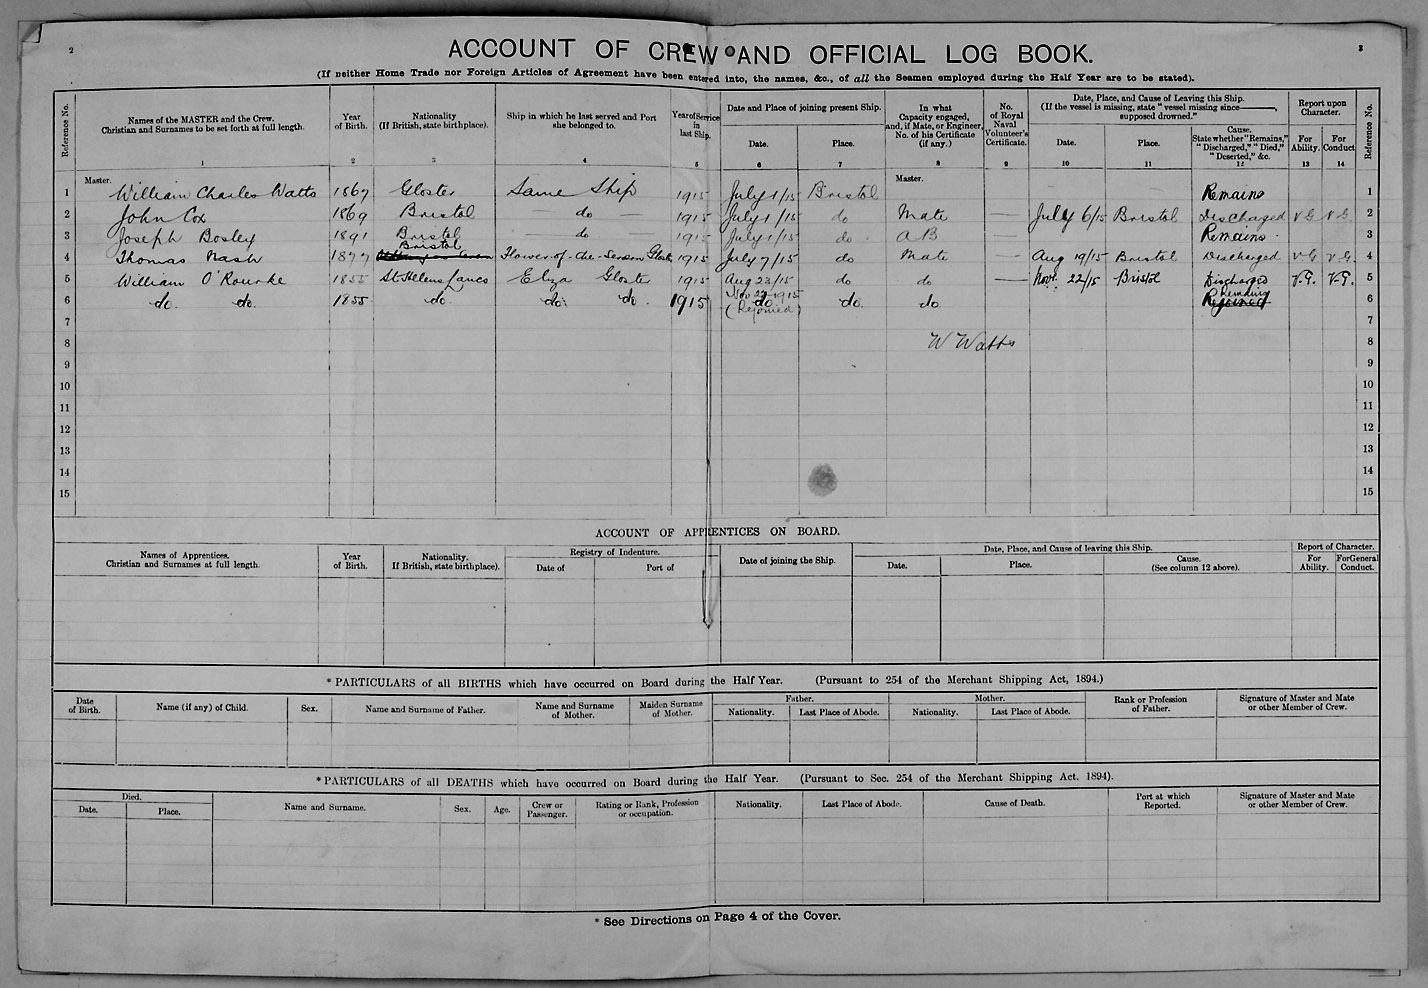 2
3
ACCOUNT OF CREW AND OFFICIAL LOG BOOK.
(If neither Home Trade nor Foreign Articles of Agreement have been entered into, the names, &c., of all the Seamen employed during the Half Year are to be stated).
Reference No. Names of the MASTER and the Crew. Christian and Surnames to be set forth at full length. Year of Birth. Nationality (If British, state birthplace). Ship in which he last served and Port she belonged to. Year of Service in last Ship. Date and Place of joining present Ship. Date. Place. In what Capacity engaged, and, if Mate, or Engineer, No. of his Certificate (if any.) No. of Royal Naval Volunteer's Certificate. Date, Place, and Cause of Leaving this Ship. (If the vessel is missing, state "vessel missing since———, supposed drowned." Date. Place. Cause. State whether "Remains," "Discharged," "Died," "Deserted," &c. Report upon Character. For Ability. For Conduct Reference No.
1 2 3 4 5 6 7 8 9 10 11 12 13 14
Master. Master.
1 William Charles Watts 1867 Gloster Same Ship 1915 July 1/15 Bristol Remains 1
2 John Cox 1869 Bristol — do — 1915 July 1/15 do Mate — July 6/15 Bristol Discharged V.G V.G 2
3 Joseph Bosley 1891 Bristol — do — 1915 July 1/15 do. A B Remains. 3
4 Thomas Nash 1877 Bristol Flower-of-the-Severn Gloster 1915 July 7/15 do Mate — Aug 19/15 Bristol Discharged V.G V.G. 4
5 William O'Rourke 1855 St Hellens Lancs Eliza Gloster 1915 Aug 23/15 do do — Nov. 22/15 Bristol Discharged V.G. V.G. 5
6 do. do. 1855 do. do. do. 1915 Nov 22 1915 do (Rejoined) do. do Remains Rejoined 6
7 7
8 W Watts 8
9 9
10 10
11 11
12 12
13 13
14 14
15 15
ACCOUNT OF APPRENTICES ON BOARD.
Names of Apprentices. Christian and Surnames at full length. Year of Birth. Nationality. If British, state birthplace). Registry of Indenture. Date of Port of Date of joining the Ship. Date, Place, and Cause of leaving this Ship. Date. Place. Cause. (See column 12 above). Report of Character. For Ability. For General Conduct.
* PARTICULARS of all BIRTHS which have occurred on Board during the Half Year. (Pursuant to 254 of the Merchant Shipping Act, 1894.)
Date of Birth. Name (if any) of Child. Sex. Name and Surname of Father. Name and Surname of Mother. Maiden Surname of Mother. Father. Nationality. Last Place of Abode. Mother. Nationality. Last Place of Abode. Rank or Profession of Father. Signature of Master and Mate or other Member of Crew.
* PARTICULARS of all DEATHS which have occurred on Board during the Half Year. (Pursuant to Sec. 254 of the Merchant Shipping Act. 1894).
Died. Date. Place. Name and Surname. Sex. Age. Crew or Passenger. Rating or Rank, Profession or occupation. Nationality. Last Place of Abode. Cause of Death. Port at which Reported. Signature of Master and Mate or other Member of Crew.
* See Directions on Page 4 of the Cover.